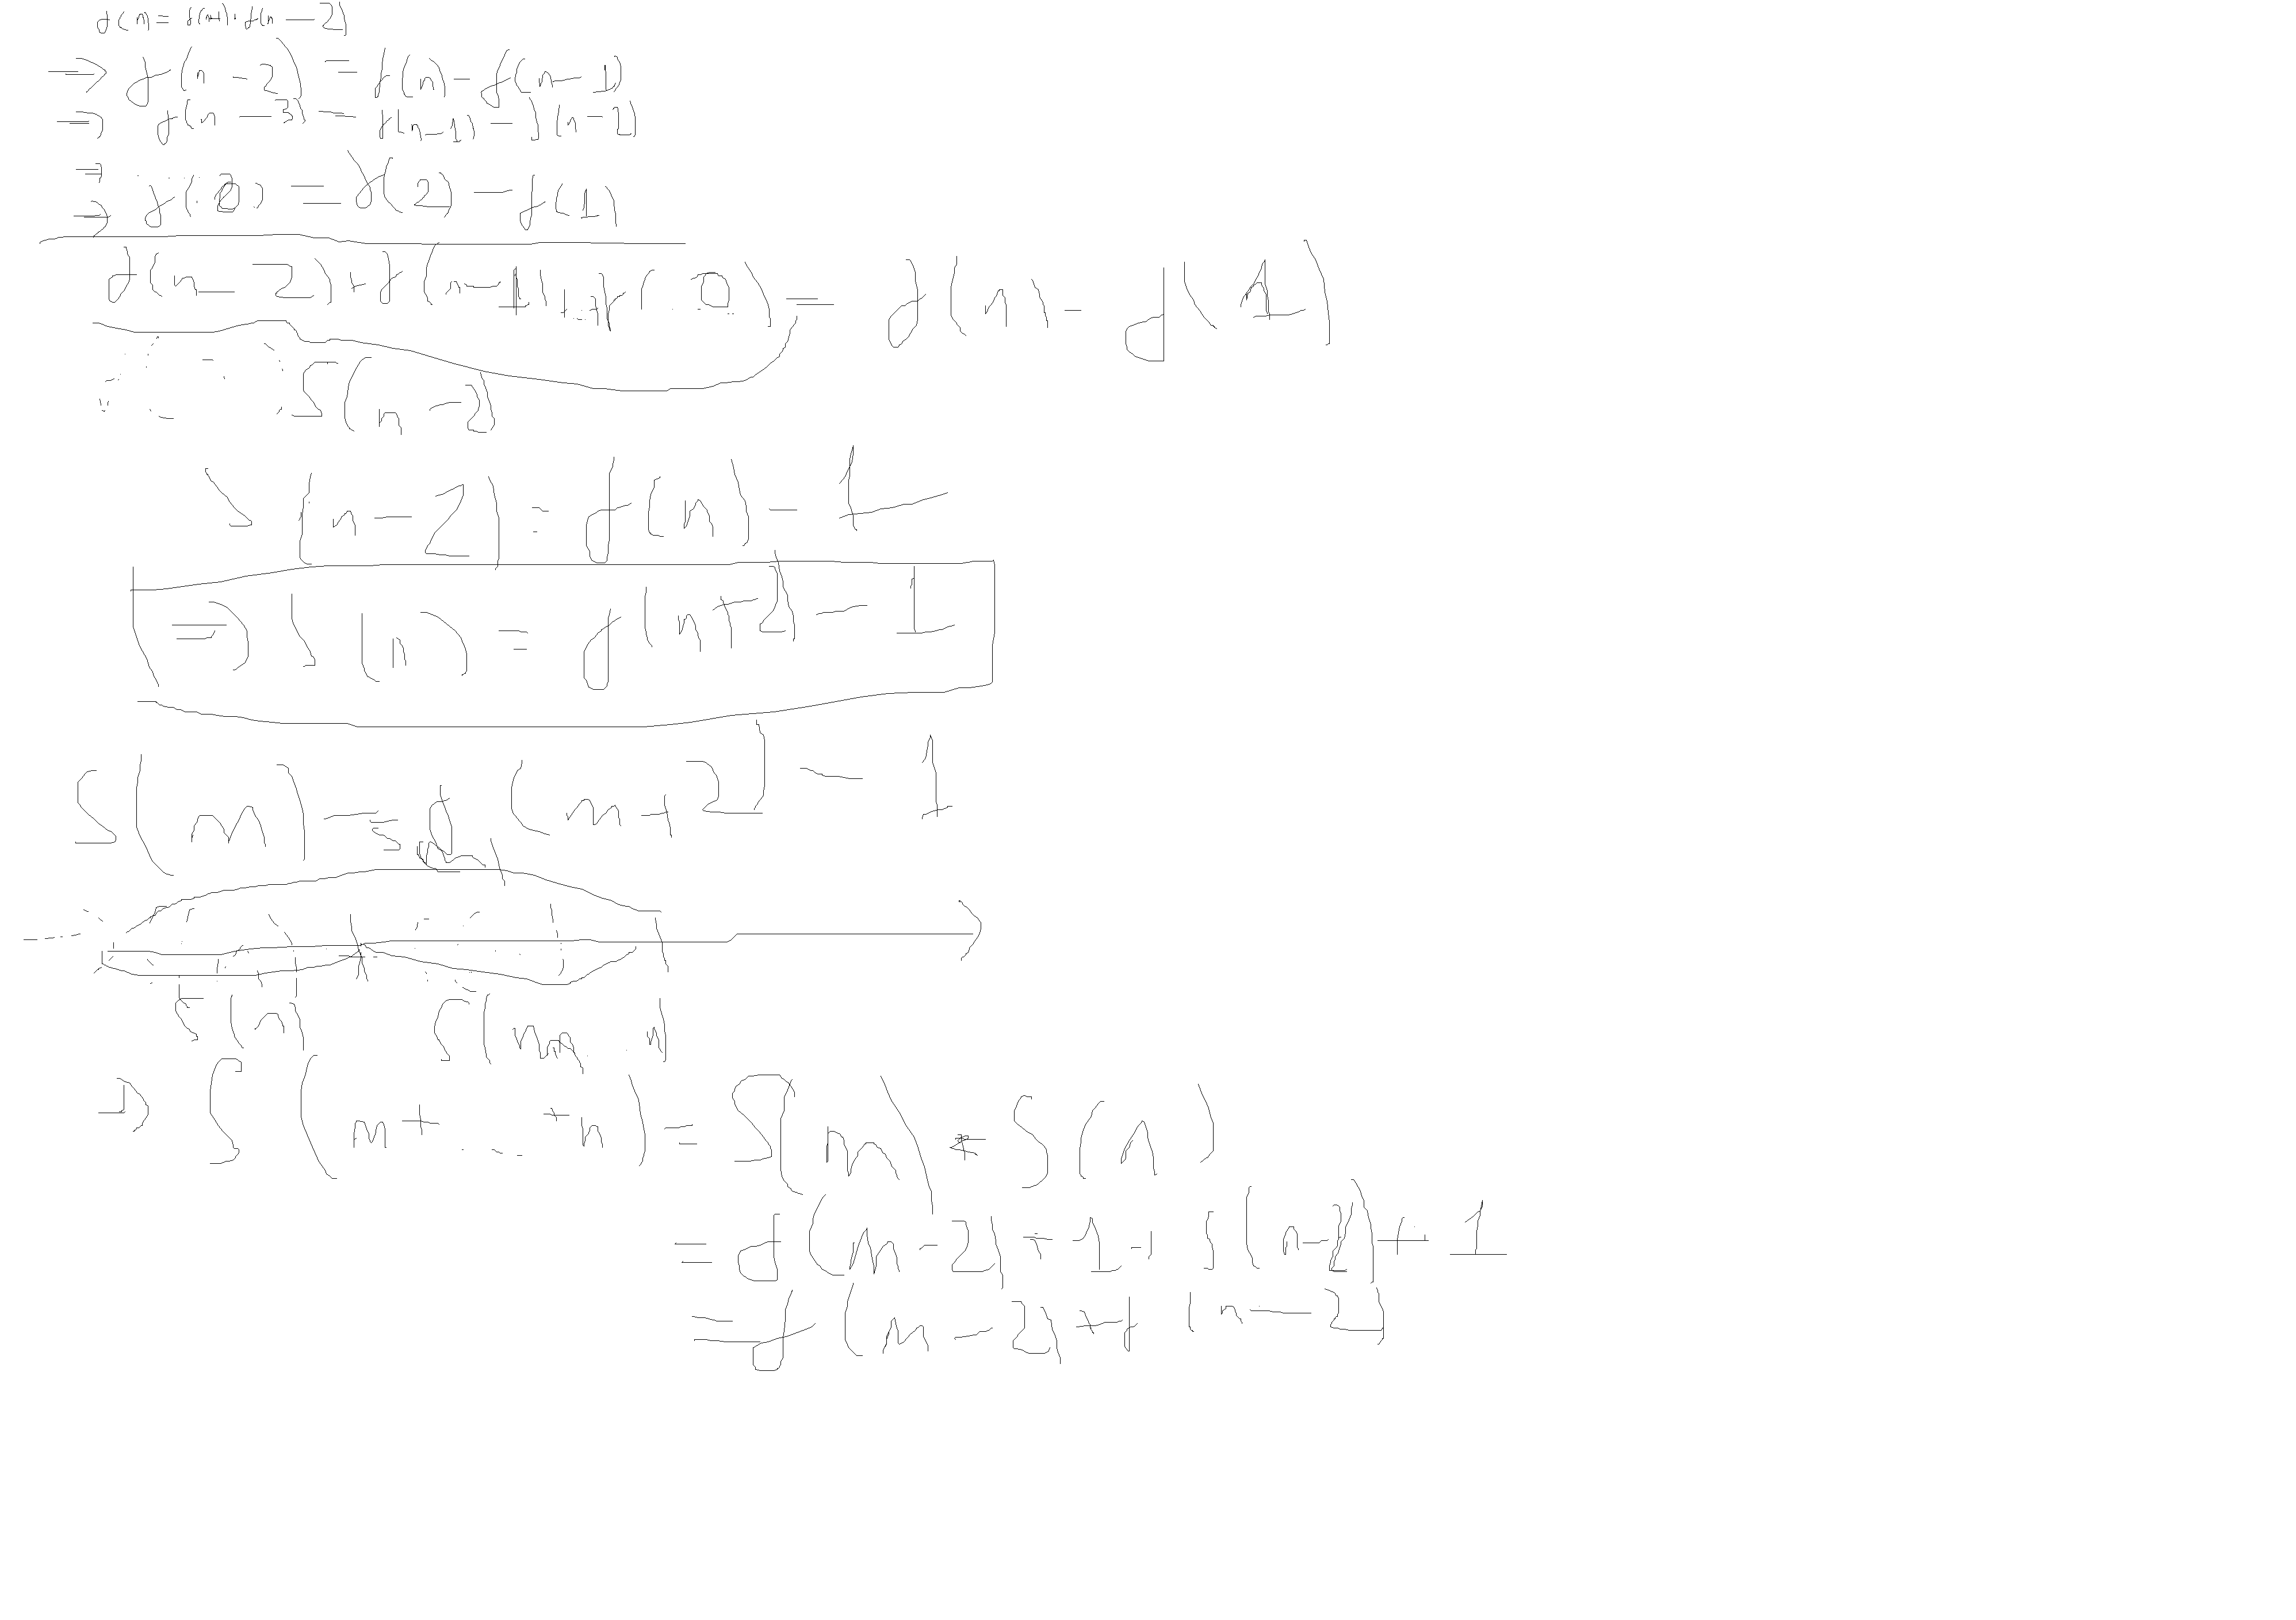 f(n) = f(n-1) + f(n-2)
⇒ f(n-2) = f(n) - f(n-1)
⇒ f(n-3) = f(n-1) - f(n-2)
⇒
⇒ f(0) = f(2) - f(1)
f(n-2) + f(n-1) + ... + f(0) = f(n) - f(1)
S(n-2)
S(n-2) = f(n) - 1
⇒ S(n) = f(n+2) - 1
S(m) = f(m+2) - 1
S(m)
S(m ... n)
⇒ S(m+ ... +n) = S(m) + S(n)
= f(m-2) + 1 - f(n-2) + 1
= f(m-2) + f(n-2)